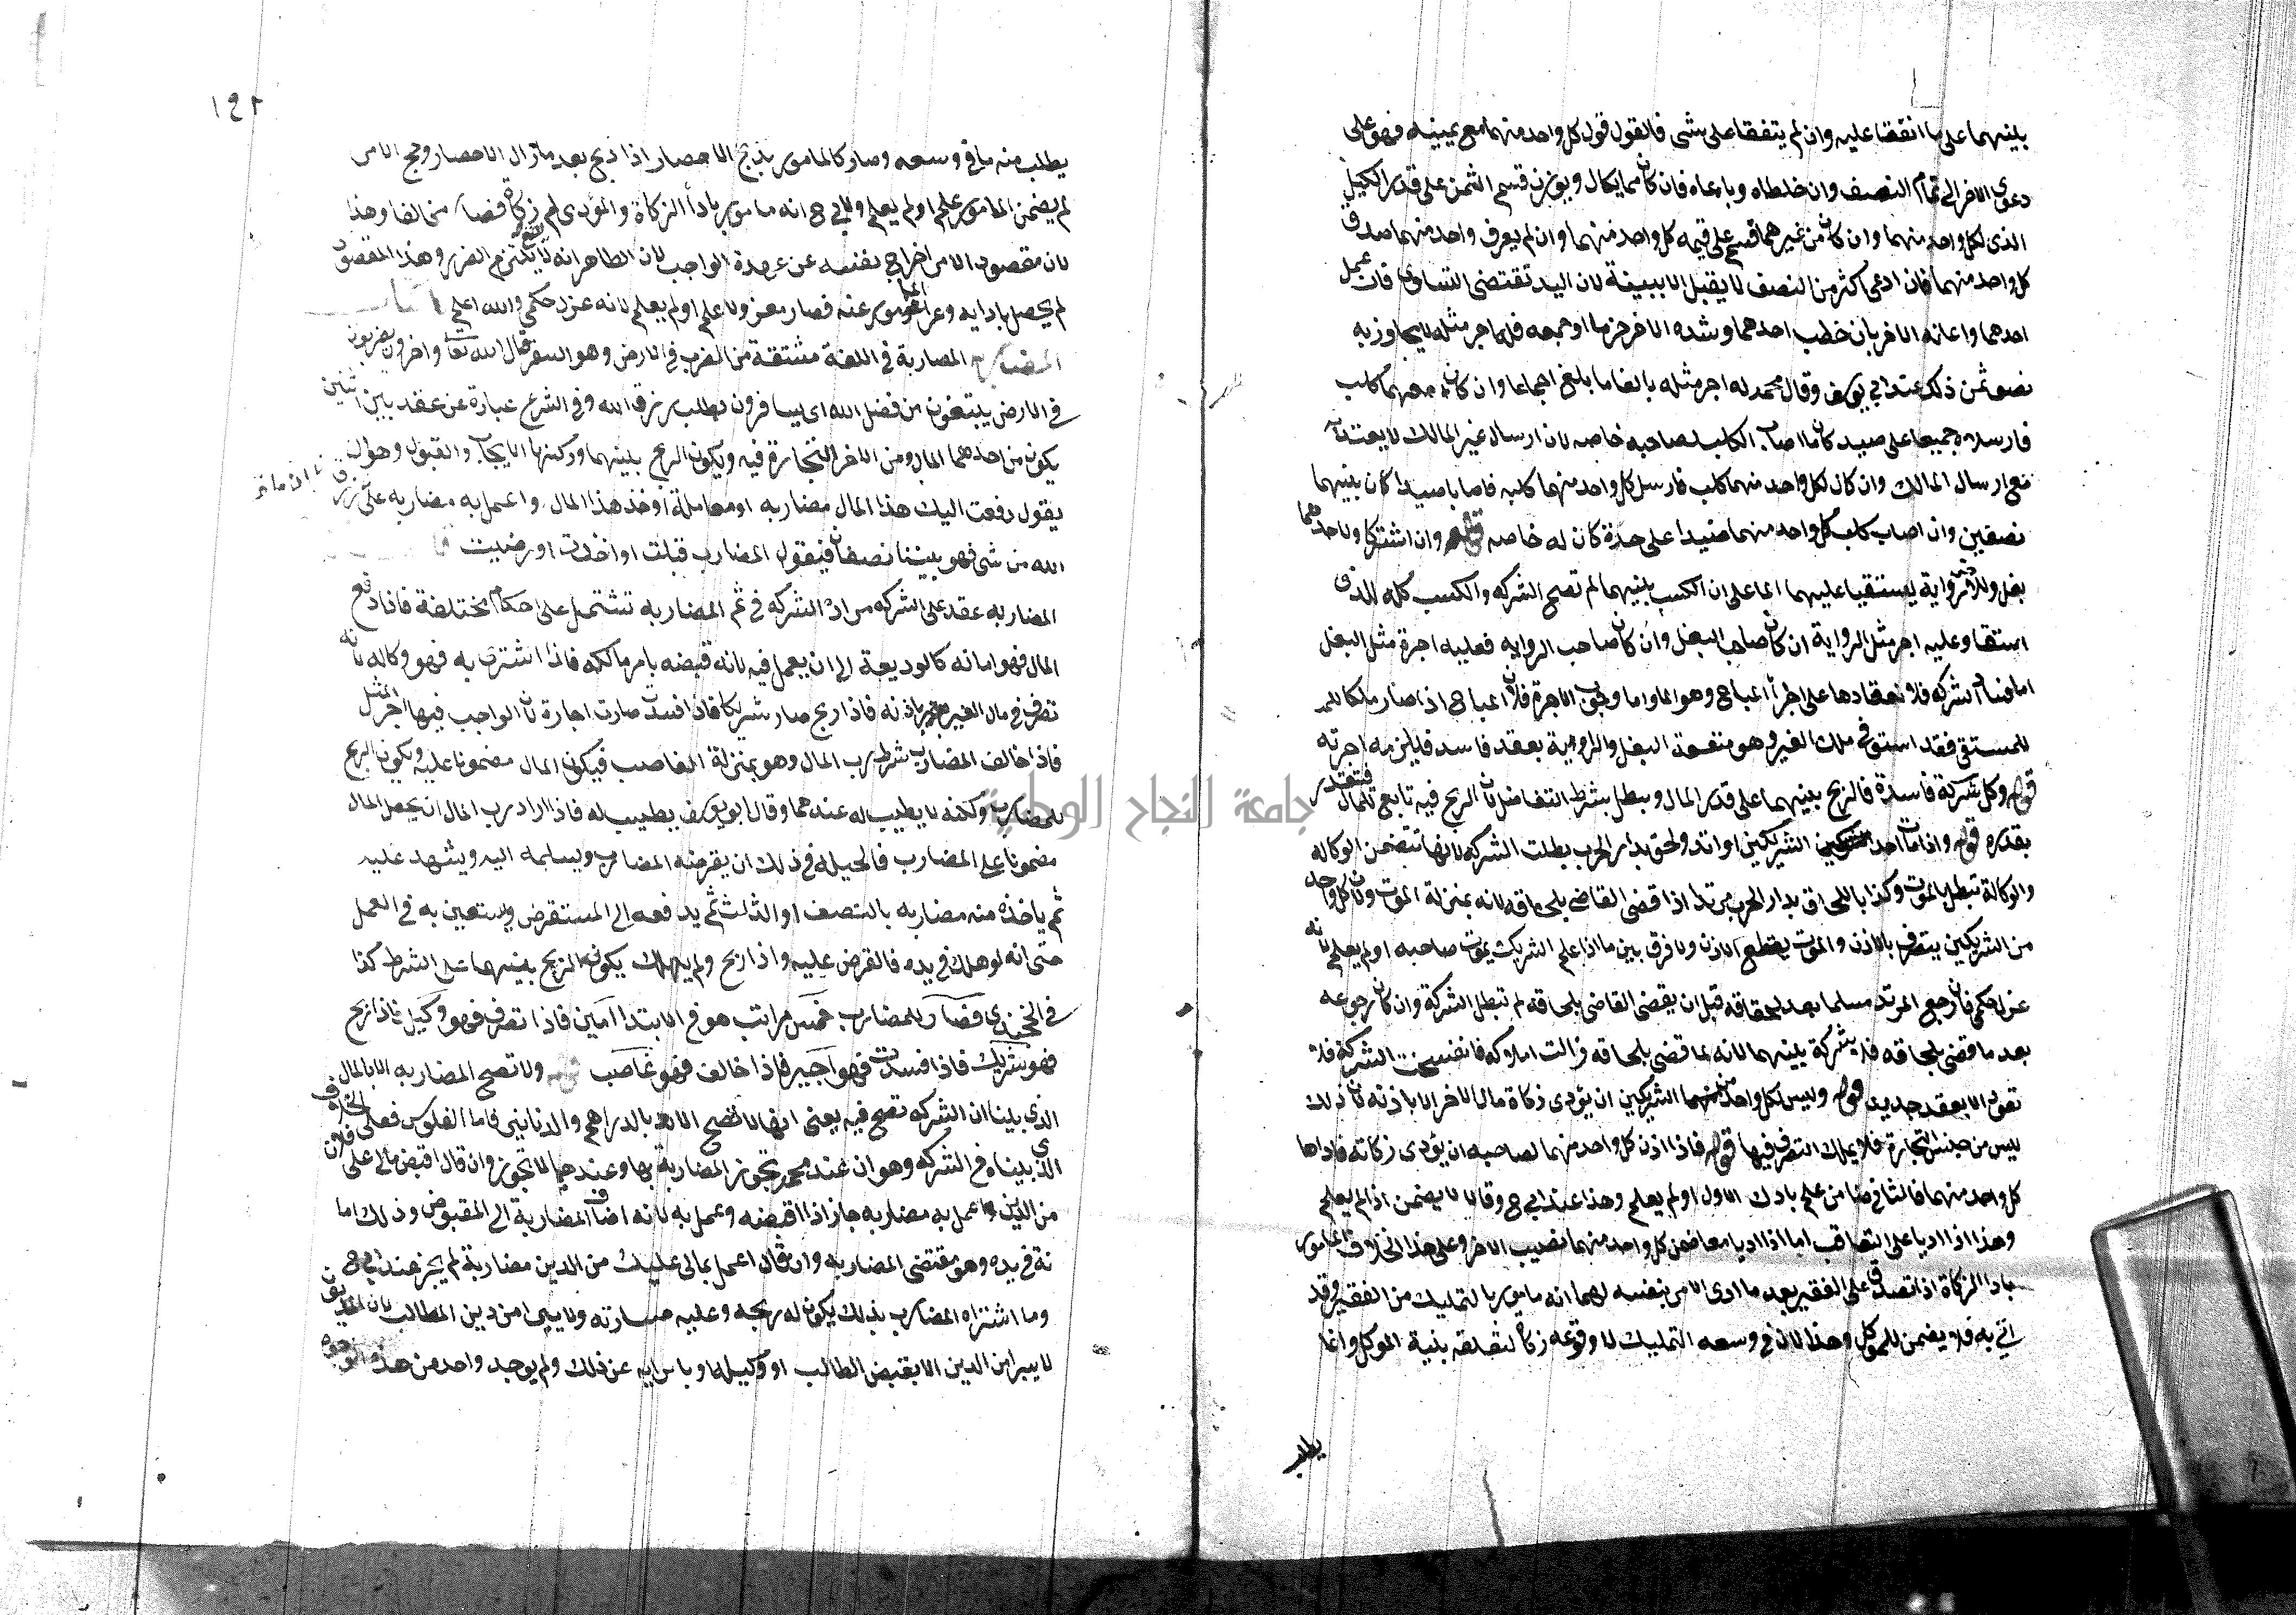 بينهما على ما اتفقا عليه وان لم يتفقا على شى فالقول قول كل واحد منهما مع يمينه فهو على
دعوى الاخر الى تمام النصف وان خلطاه وباعاه فان كان مما يكال ويوزن قسم الثمن على قدر الكيل
الذى لكل واحد منهما وان كان من غيرهما قسم على قيمه كل واحد منهما وان لم يعرف واحد منهما صدق
كل واحد منهما فان ادعى اكثر من النصف لا يقبل الا ببينة لان اليد تقتضى التساوى فان عمل
احدهما واعانه الاخر بان خطب احدهما وشده الاخر حزما او جمعه فله اجر مثله لا يجاوز به
نصف ثمن ذلك عند ابي يوسف وقال محمد له اجر مثله بالغا ما بلغ اجماعا وان كان معهما كلب
فارسلاه جميعا على صيد كان ما اصاب الكلب لصاحبه خاصه لان ارسال غير المالك لا يعتد به
مع ارسال المالك وان كان لكل واحد منهما كلب فارسل كل واحد منهما كلبه فاصابا صيدا كان بينهما
نصفين وان اصاب كلب كل واحد منهما صيدا على حدة كان له خاصه قوله وان اشتركا ولاحدهما
بغل وللاخر رواية يستقيا عليهما الما على ان الكسب بينهما لم تصح الشركه والكسب كله للذى
استقا وعليه اجر مثل الرواية ان كان صاحب البغل وان كان صاحب الروايه فعليه اجرة مثل البغل
اما فساد الشركه فلانعقادها على احراز المباح وهو الما واما وجوب الاجرة فلان المباح اذا صار ملكا للمحرز
للمستقى فقد استوفى ملك الغير وهو منفعة البغل والراوية بعقد فاسد فيلزمه اجرته
قوله وكل شركة فاسدة فالربح بينهما على قدر المال ويبطل شرط التفاضل لان الربح فيه تابع للمال فيتقدر
بقدره قوله واذا مات احد الشريكين او ارتد ولحق بدار الحرب بطلت الشركه لانها تتضمن الوكاله
والوكالة تبطل بالموت وكذا باللحاق بدار الحرب مرتدا اذا قضى القاضى بلحاقه لانه بمنزلة الموت ولان كل واحد
من الشريكين يتصرف بالاذن والموت يقطع الاذن ولا فرق بين ما اذا علم الشريك بموت صاحبه او لم يعلم لانه
عزل حكمى فان رجع المرتد مسلما بعد لحاقه قبل ان يقضى القاضى بلحاقه لم تبطل الشركة وان كان رجوعه
بعد ما قضى بلحاقه فلا شركة بينهما لانه لما قضى بلحاقه زالت املاكه فانفسخت الشركة فلا
تعود الا بعقد جديد قوله وليس لكل واحد من الشريكين ان يؤدى زكاة مال الاخر الا باذنه لان ذلك
ليس من جنس التجارة فلا يملك التصرف فيها قوله فاذا اذن كل واحد منهما لصاحبه ان يؤدى زكاته فاداها
كل واحد منهما فالثانى ضامن علم باداء الاول او لم يعلم وهذا عند ابى ح وقالا لا يضمن اذا لم يعلم
وهذا اذا اديا على التعاقب اما اذا اديا معا ضمن كل واحد منهما نصيب الاخر وعلى هذا الخلاف المامور
باداء الزكاة اذا تصدق على الفقير بعد ما ادى الامر بنفسه لهما انه مامور بالتمليك من الفقير وقد
اتى به فلا يضمن للموكل وهذا لان فى وسعه التمليك لا وقوعه زكاة لتعلقه بنية الموكل وانما
يطلب
١٩٢
يطلب منه ما فى وسعه وصار كالمامور بذبح الاحصار اذا ذبح بعد ما زال الاحصار وحج الامر
لم يضمن المامور علم او لم يعلم ولابى ح انه مامور باداء الزكاة والمؤدى لم يقع زكاة فصار مخالفا وهذا
لان مقصود الامر اخراج نفسه عن عهدة الواجب لان الظاهر انه لا يلتزم الضرر وهذا المقصود
لم يحصل بادايه وعرا المامور عنه فصار معزولا علم او لم يعلم لانه عزل حكمى والله اعلم كتاب
المضاربه المضاربة فى اللغة مشتقة من الضرب فى الارض وهو السفر قال الله تعالى واخرون يضربون
فى الارض يبتغون من فضل الله اى يسافرون بطلب رزق الله وفى الشرع عبارة عن عقد بين اثنين
يكون من احدهما المال ومن الاخر التجارة فيه ويكون الربح بينهما وركنها الايجاب والقبول وهو ان
يقول دفعت اليك هذا المال مضاربه او معاملة او خذ هذا المال واعمل به مضاربه على ان ما رزق
الله من شى فهو بيننا نصفان فيقول المضارب قبلت او اخذت او رضيت
المضاربه عقد على الشركه مراده الشركه فى ثم المضاربه تشتمل على احكام مختلفة فاذا دفع
المال فهو امانه كالوديعة الى ان يعمل فيه لانه قبضه بامر مالكه فاذا اشترى به فهو وكاله لانه
تصرف فى مال الغير باذنه فاذا ربح صار شريكا فاذا فسدت صارت اجارة لان الواجب فيها اجر المثل
فاذا خالف المضارب شرط رب المال وهو بمنزلة الغاصب فيكون المال مضمونا عليه ويكون الربح
للمضارب ولكنه لا يطيب له عندهما وقال ابو يوسف يطيب له فاذا اراد رب المال ان يجعل المال
مضمونا على المضارب فالحيله فى ذلك ان يقرضه المضارب ويسلمه اليه ويشهد عليه
ثم ياخذه منه مضاربه بالنصف او الثلث ثم يدفعه الى المستقرض ويستعين به فى العمل
حتى انه لو هلك فى يده فالقرض عليه واذا ربح ولم يهلك يكون الربح بينهما على الشرط كذا
فى الخجندى فصار للمضارب خمس مراتب هو فى الابتدا امين فاذا تصرف فهو وكيل فاذا ربح
فهو شريك فاذا فسدت فهو اجير فاذا خالف فهو غاصب قوله ولا تصح المضاربه الا بالمال
الذى بينا ان الشركه تصح فيه يعنى انها لا تصح الا بالدراهم والدنانير فاما الفلوس فعلى الخلاف
الذى بيناه فى الشركه وهو ان عند محمد تجوز المضاربة بها وعندهما لا تجوز وان قال اقبض مالى على فلان
من الدين واعمل به مضاربه جاز اذا اقبضه وعمل به لانه اضاف المضاربة الى المقبوض وذلك اما
نة فى يده وهو مقتضى المضاربه وان قال اعمل بمالى عليك من الدين مضاربة لم يجز عند ابى ح
وما اشتراه المضارب بذلك يكون له ربحه وعليه خسارته ولا يبرا من دين المطالب لان المديون
لا يبرا من الدين الا بقبض الطالب او وكيله او بابرايه عن ذلك ولم يوجد واحد من هذه الوجوه
جامعة النجاح الوطنية